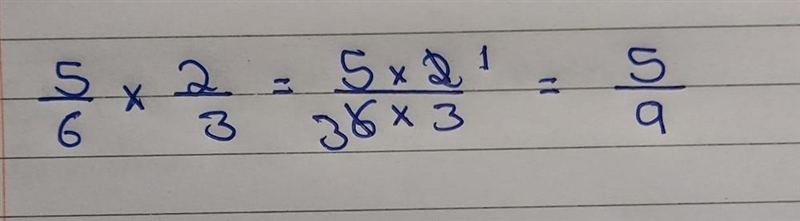 5/6 × 2/3 = (5 × 2̸ 1)/(3 6̸ × 3) = 5/9